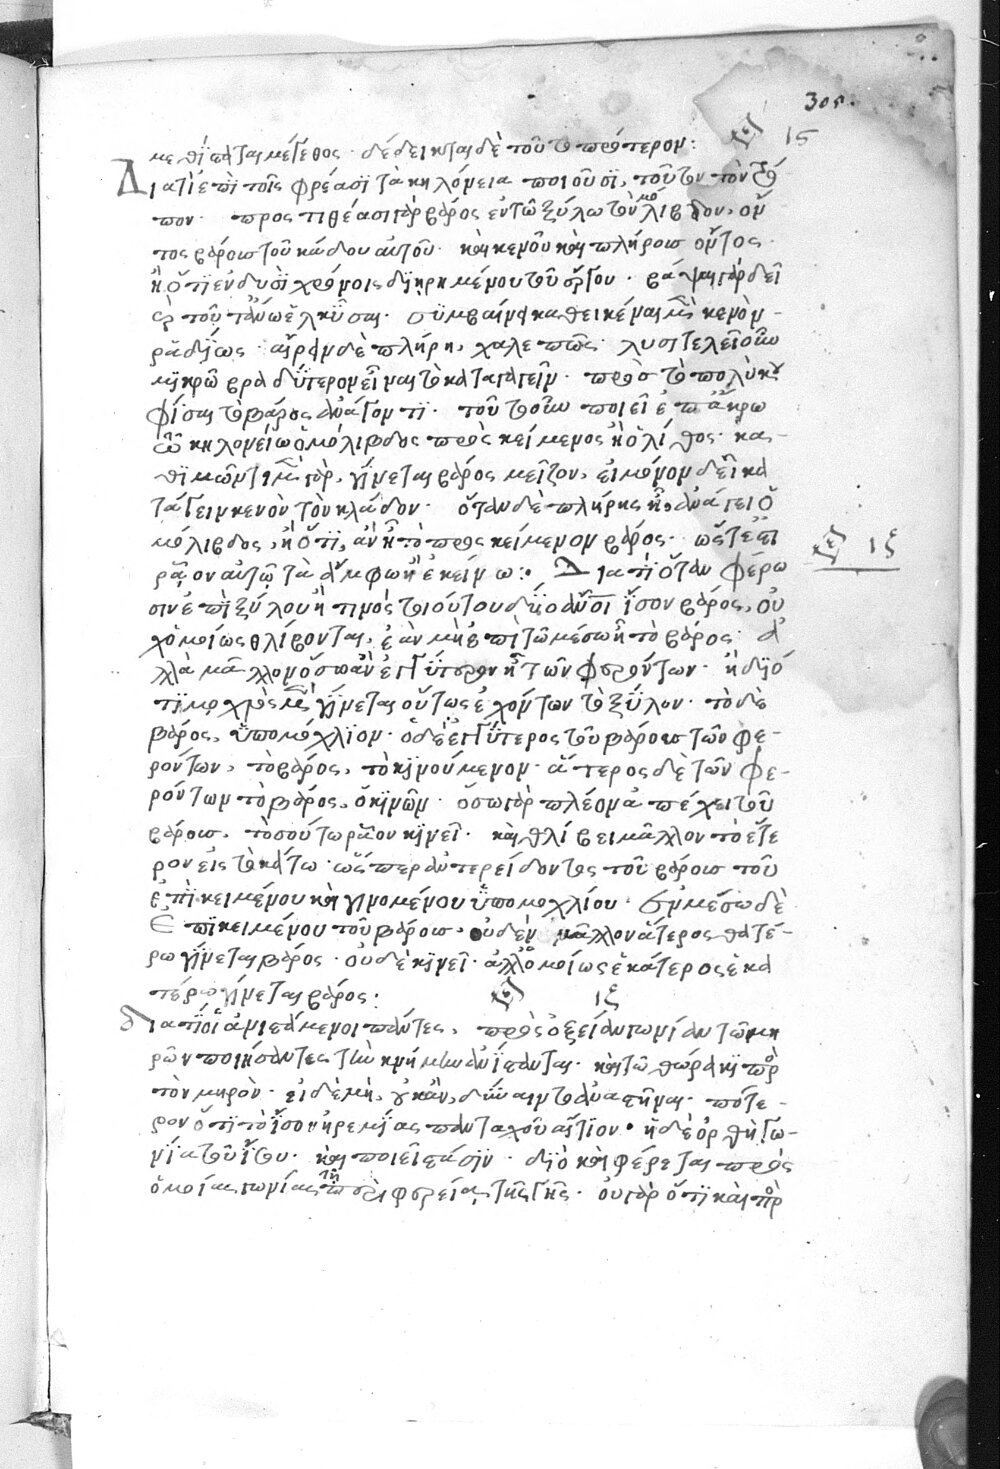 305.
ις
μεθίσταται μέγεθος· δέδεικται δὲ τοῦτο πρότερον:
Διατί ἐπὶ τοῖς φρέασι τὰ κηλόνεια ποιοῦσι, τοῦτον τὸν τρό
πον· προστιθέασι γὰρ βάρος ἐν τῷ ξύλω τὸν μόλιβδον, ὄν
τος βάρους τοῦ κάδου αὐτοῦ· καὶ κενοῦ καὶ πλήρους ὄντος·
ἢ ὅτι ἐν δυσὶ χρόνοις διηρημένου τοῦ ἔργου· βάψαι γὰρ δεῖ
καὶ τοῦτ' ἄνω ἑλκῦσαι· συμβαίνει καθεικέναι μὲν κενὸν
ῥαδίως· αἴρειν δὲ πλήρη, χαλεπῶς· λυσιτελεῖ οὖν
μικρῷ βραδύτερον εἶναι τὸ καταγαγεῖν· πρὸς τὸ πολὺ κου
φίσαι τὸ βάρος ἀνάγοντι· τοῦτο οὖν ποιεῖ ἐπ' ἄκρω
τῷ κηλονείω ὁ μόλιβδος προσκείμενος ἢ ὁ λίθος· κα
θιμῶντι μὲν γὰρ, γίνεται βάρος μεῖζον, εἰ μόνον δεῖ κα
τάγειν κενὸν τὸν κάδον· ὅταν δὲ πλήρης ᾖ, ἀνάγει ὁ
μόλιβδος, ἢ ὅτι ἂν ᾖ τὸ προσκείμενον βάρος· ὥστ' ἔστι
ιζ
ρᾷον αὐτῷ τὰ ἄμφω ἢ ἐκείνω:· Διατί ὅταν φέρω
σιν ἐπὶ ξύλου ἤ τινος τοιούτου δύο ἄνοι ἴσον βάρος, οὐ
χ ὁμοίως θλίβονται, ἐὰν μὴ ἐπὶ τῷ μέσω ᾖ τὸ βάρος· ἀ
λλὰ μᾶλλον ὅσω ἂν ἐγγύτερον ᾖ τῶν φερόντων· ἢ διό
τι μοχλὸς μὲν γίνεται οὕτως ἐχόντων τὸ ξύλον· τὸ δὲ
βάρος, ὑπομόχλιον· ὁ δὲ ἐγγύτερος τοῦ βάρους τῶν φε
ρόντων, τὸ βάρος, τὸ κινούμενον· ἅτερος δὲ τῶν φε
ρόντων τὸ βάρος, ὁ κινῶν· ὅσω γὰρ πλέον ἀπέχει τοῦ
βάρους, τοσούτω ρᾷον κινεῖ· καὶ θλίβει μᾶλλον τὸ ἕτε
ρον εἰς τὸ κάτω· ὥσπερ ἀντερείδοντος τοῦ βάρους τοῦ
ἐπικειμένου καὶ γινομένου ὑπομοχλίου· ἐν μέσω δὲ
ἐπικειμένου τοῦ βάρους· οὐδὲν μᾶλλον ἅτερος θατέ
ρω γίνεται βάρος· οὐδὲ κινεῖ· ἀλλ' ὁμοίως ἑκάτερος ἑκα
τέρω γίνεται βάρος:
ιξ
διατί οἱ ἀνιστάμενοι πάντες, πρὸς ὀξεῖαν γωνίαν τῷ μη
ρῷ ποιήσαντες τὴν κνήμην ἀνίστανται· καὶ τῷ θώρακι πρὸς
τὸν μηρόν· εἰ δὲ μὴ, οὐκ ἂν δύναιντο ἀναστῆναι· πότε
ρον ὅτι τὸ ἴσον ἠρεμίας πανταχοῦ αἴτιον· ἡ δὲ ὀρθὴ γω
νία τοῦ ἴσου· καὶ ποιεῖ στάσιν· διὸ καὶ φέρεται πρὸς
ὁμοίας γωνίας τῇ περιφερείᾳ τῆς γῆς· οὐ γὰρ ὅτι καὶ πρὸς